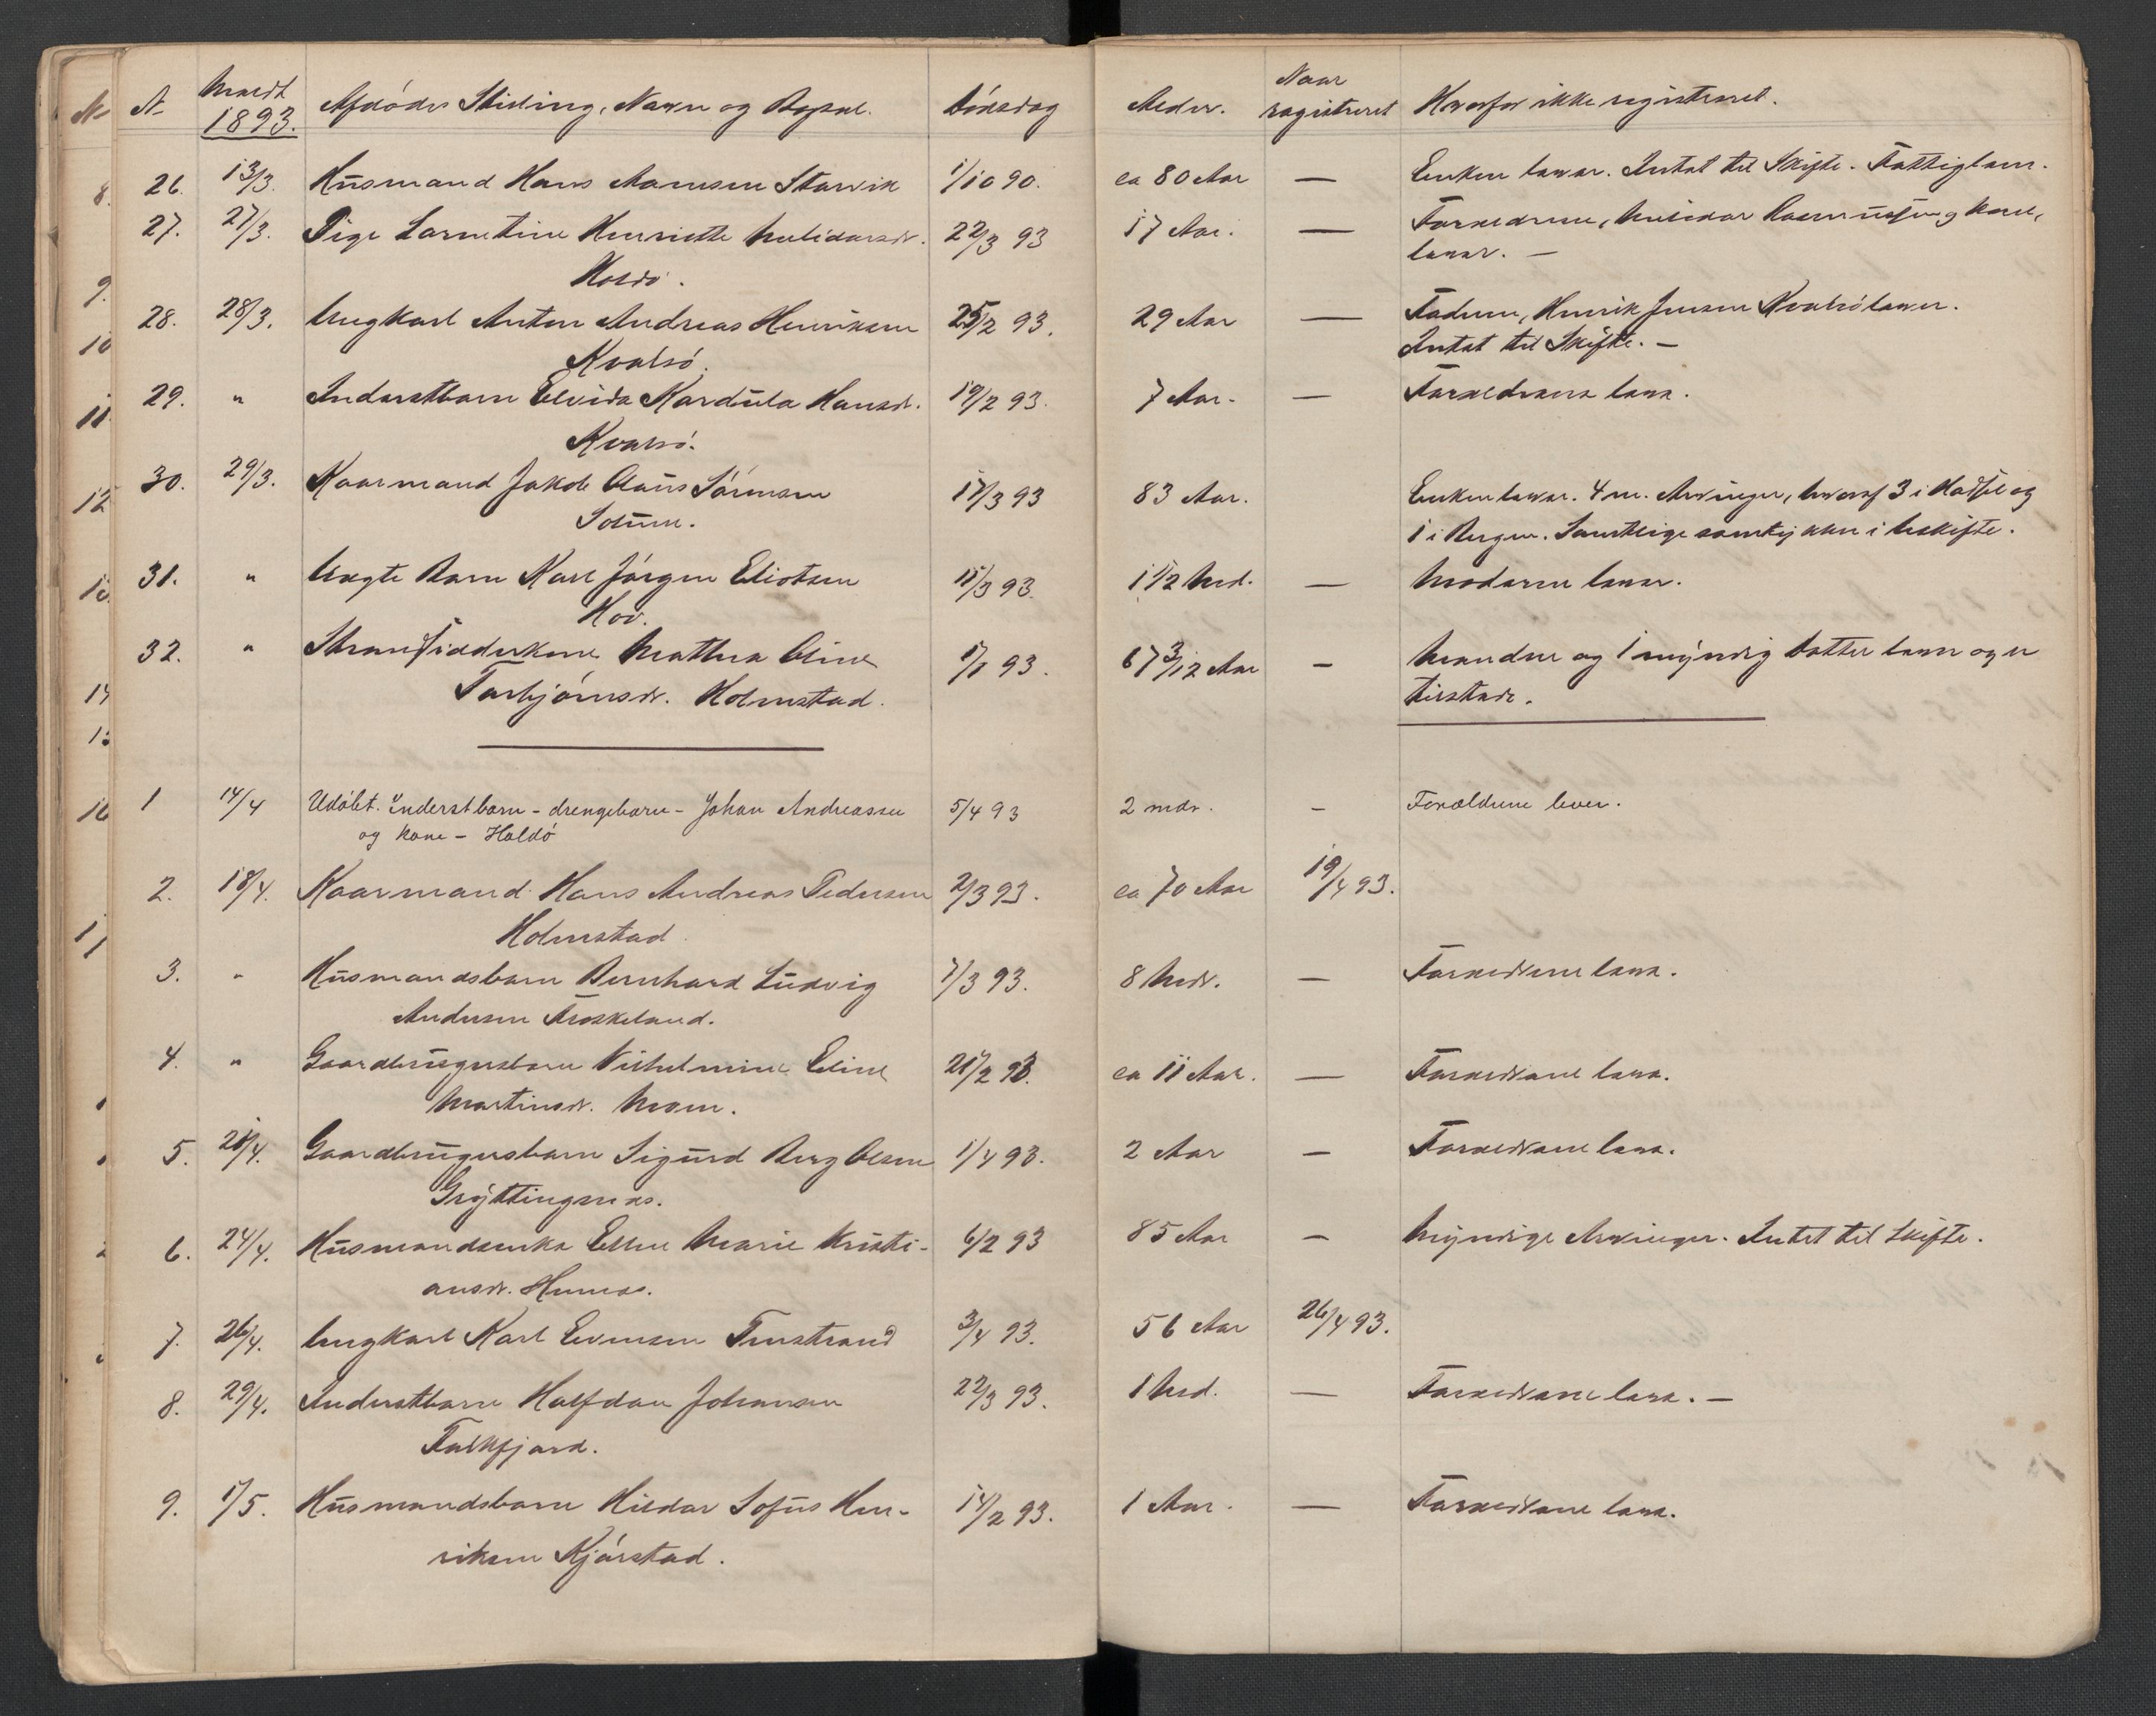 N. Meldt 1893. Afdødes Stilling, Navn og Bopæl. Dødsdag Alder. Naar registreret Hvorfor ikke registreret.
26. 13/3. Husmand Hans Hansen Starvik 1/10 90. ca 80 Aar — Enken lever. Intet til Skifte. Fattiglem.
27. 27/3. Pige Lornetine Henriette Melidorsdr. 22/3 93 17 Aar. — Forældrene, Melidor Rasmussen og Kone,
Holdø. lever. —
28. 28/3. Ungkarl Anton Andreas Henriksen 25/2 93. 29 Aar — Faderen, Henrik Jensen Kvalsø lever.
Kvalsø. Intet til Skifte. —
29. " Inderstbarn Elvida Kardula Hansdr. 19/2 93. 7 Aar. — Forældrene leve.
Kvalsø.
30. 29/3. Kaarmand Jakob Claus Sørensen 17/3 93 83 Aar. Enken lever. 4 m. Arvinger, hvoraf 3 i Hadsel og
Sotun. 1 i Bergen. Samtlige samtykker i Uskifte.
31. " Uægte Barn Karl Jørgen Eliotsen 15/3 93. 1 1/2 Md. — Moderen lever.
Hov.
32. " Strandsidderkone Mathea Oline 17/1 93. 67 3/12 Aar — Manden og 1 myndig Datter lever og er
Torbjørnsdr. Holmstad. tilstede.
1 14/4 Udøbt. Inderstbarn - drengebarn - Johan Andreassen 5/4 93 2 mdr. - Forældrene lever.
og kone - Holdø
2. 18/4. Kaarmand Hans Andreas Pedersen 2/3 93. ca 70 Aar 19/4 93.
Holmstad.
3. " Husmandsbarn Bernhard Ludvig 7/3 93. 8 Mdr. — Forældrene leve.
Andersen Froskeland.
4. " Gaardbrugersbarn Vilhelmine Eline 21/2 93. ca 11 Aar. — Forældrene leve.
Martinsdr. Moen.
5. 21/4. Gaardbrugersbarn Sigurd Berg Olsen 1/4 93. 2 Aar — Forældrene leve.
Gryttingsnes.
6. 24/4. Husmandsenke Ellen Marie Kristi- 6/2 93 85 Aar — Myndige Arvinger. Intet til Skifte.
ansdr. Hennes.
7. 26/4. Ungkarl Karl Evensen Tunstrand 3/4 93. 56 Aar 26/4 93.
8. 29/4. Inderstbarn Halfdan Johansen 22/3 93. 1 Md. — Forældrene leve. —
Falkfjord.
9. 1/5. Husmandsbarn Hildor Sofus Hen- 14/2 93. 1 Aar. — Forældrene leve.
riksen Kjørstad.